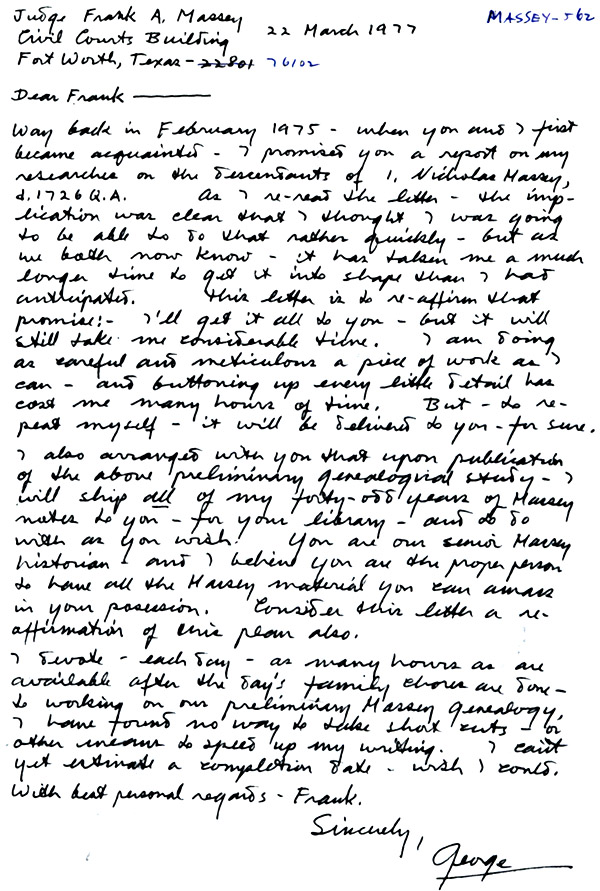 Judge Frank A. Massey
MASSEY-562
Civil Courts Building
22 March 1977
Fort Worth, Texas - 22801 76102
Dear Frank ———
Way back in February 1975 - when you and I first
became acquainted - I promised you a report on my
researches on the descendants of 1. Nicholas Massey,
d. 1726 Q.A. As I re-read the letter - the imp-
lication was clear that I thought I was going
to be able to do that rather quickly - but as
we both now know - it has taken me a much
longer time to get it into shape than I had
anticipated. This letter is to re-affirm that
promise:- I'll get it all to you - but it will
still take me considerable time. I am doing
as careful and meticulous a piece of work as I
can - and buttoning up every little detail has
cost me many hours of time. But - to re-
peat myself - it will be delivered to you - for sure.
I also arranged with you that upon publication
of the above preliminary genealogical study - I
will ship all of my forty-odd years of Massey
notes to you - for your library - and to do
with as you wish. You are our senior Massey
historian - and I believe you are the proper person
to have all the Massey material you can amass
in your posession. Consider this letter a re-
affirmation of this plan also.
I devote - each day - as many hours as are
available after the day's family chores are done -
to working on our preliminary Massey genealogy,
I have found no way to take short cuts - or
other means to speed up my writing. I can't
yet estimate a completion date - wish I could.
With best personal regards - Frank.
Sincerely,
George